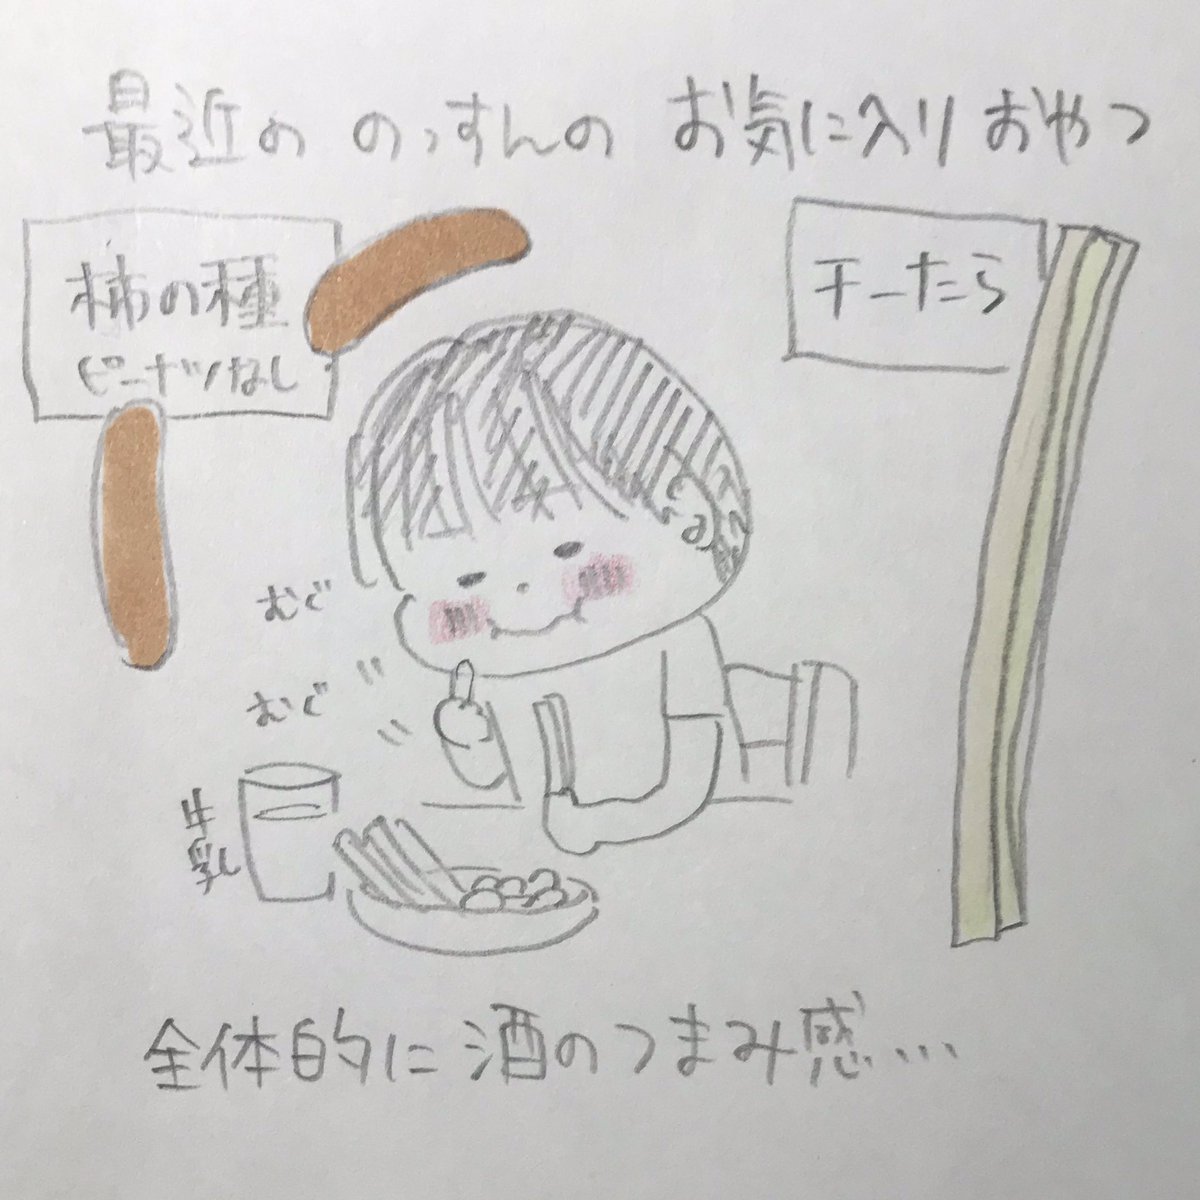 最近の のっすんの お気に入りおやつ
柿の種
ピーナッツなし
チーたら
むぐ
むぐ
牛乳
全体的に酒のつまみ感...